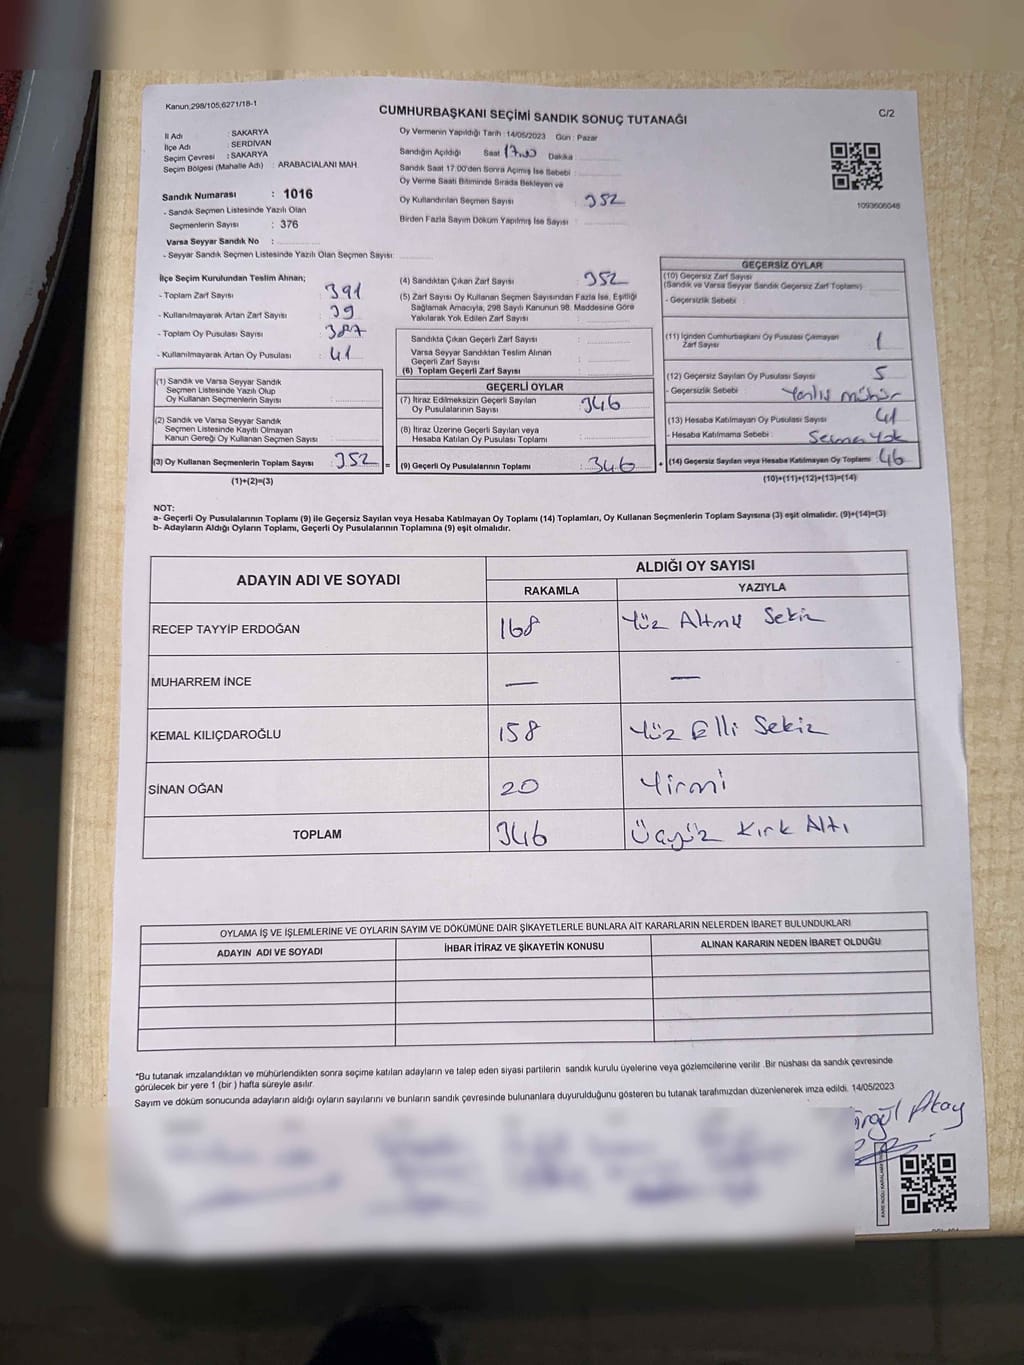 Kanun.298/105;6271/18-1
CUMHURBAŞKANI SEÇİMİ SANDIK SONUÇ TUTANAĞI
C/2
İl Adı : SAKARYA
İlçe Adı : SERDİVAN
Seçim Çevresi : SAKARYA
Seçim Bölgesi (Mahalle Adı) : ARABACIALANI MAH.
Sandık Numarası : 1016
- Sandık Seçmen Listesinde Yazılı Olan
Seçmenlerin Sayısı : 376
Varsa Seyyar Sandık No :
- Seyyar Sandık Seçmen Listesinde Yazılı Olan Seçmen Sayısı:
Oy Vermenin Yapıldığı Tarih :14/05/2023 Gün : Pazar
Sandığın Açıldığı Saat 17.00 Dakika
Sandık Saat 17:00'den Sonra Açımış İse Sebebi :
Oy Verme Saati Bitiminde Sırada Bekleyen ve
Oy Kullandırılan Seçmen Sayısı : 352
Birden Fazla Sayım Döküm Yapılmış İse Sayısı :
1093606048
İlçe Seçim Kurulundan Teslim Alınan;
- Toplam Zarf Sayısı : 391
- Kullanılmayarak Artan Zarf Sayısı : 39
- Toplam Oy Pusulası Sayısı : 387
- Kullanılmayarak Artan Oy Pusulası : 41
(1) Sandık ve Varsa Seyyar Sandık
Seçmen Listesinde Yazılı Olup
Oy Kullanan Seçmenlerin Sayısı :
(2) Sandık ve Varsa Seyyar Sandık
Seçmen Listesinde Kayıtlı Olmayan
Kanun Gereği Oy Kullanan Seçmen Sayısı :
(3) Oy Kullanan Seçmenlerin Toplam Sayısı : 352 =
(1)+(2)=(3)
(4) Sandıktan Çıkan Zarf Sayısı : 352
(5) Zarf Sayısı Oy Kullanan Seçmen Sayısından Fazla İse, Eşitliği
Sağlamak Amacıyla, 298 Sayılı Kanunun 98. Maddesine Göre
Yakılarak Yok Edilen Zarf Sayısı :
Sandıkta Çıkan Geçerli Zarf Sayısı :
Varsa Seyyar Sandıktan Teslim Alınan
Geçerli Zarf Sayısı :
(6) Toplam Geçerli Zarf Sayısı :
GEÇERLİ OYLAR
(7) İtiraz Edilmeksizin Geçerli Sayılan
Oy Pusulalarının Sayısı : 346
(8) İtiraz Üzerine Geçerli Sayılan veya
Hesaba Katılan Oy Pusulası Toplamı :
(9) Geçerli Oy Pusulalarının Toplamı : 346 +
GEÇERSİZ OYLAR
(10) Geçersiz Zarf Sayısı
(Sandık ve Varsa Seyyar Sandık Geçersiz Zarf Toplamı) :
- Geçersizlik Sebebi :
(11) İçinden Cumhurbaşkanı Oy Pusulası Çıkmayan
Zarf Sayısı : 1
(12) Geçersiz Sayılan Oy Pusulası Sayısı : 5
- Geçersizlik Sebebi : Yanlış mühür
(13) Hesaba Katılmayan Oy Pusulası Sayısı : 41
- Hesaba Katılmama Sebebi : Yok
(14) Geçersiz Sayılan veya Hesaba Katılmayan Oy Toplamı : 46
(10)+(11)+(12)+(13)=(14)
NOT:
a- Geçerli Oy Pusulalarının Toplamı (9) ile Geçersiz Sayılan veya Hesaba Katılmayan Oy Toplamı (14) Toplamları, Oy Kullanan Seçmenlerin Toplam Sayısına (3) eşit olmalıdır. (9)+(14)=(3)
b- Adayların Aldığı Oyların Toplamı, Geçerli Oy Pusulalarının Toplamına (9) eşit olmalıdır.
ADAYIN ADI VE SOYADI
ALDIĞI OY SAYISI
RAKAMLA YAZIYLA
RECEP TAYYİP ERDOĞAN 168 Yüz Altmış Sekiz
MUHARREM İNCE — —
KEMAL KILIÇDAROĞLU 158 Yüz Elli Sekiz
SİNAN OĞAN 20 Yirmi
TOPLAM 346 Üçyüz Kırk Altı
OYLAMA İŞ VE İŞLEMLERİNE VE OYLARIN SAYIM VE DÖKÜMÜNE DAİR ŞİKAYETLERLE BUNLARA AİT KARARLARIN NELERDEN İBARET BULUNDUKLARI
ADAYIN ADI VE SOYADI İHBAR İTİRAZ VE ŞİKAYETİN KONUSU ALINAN KARARIN NEDEN İBARET OLDUĞU
*Bu tutanak imzalandıktan ve mühürlendikten sonra seçime katılan adayların ve talep eden siyasi partilerin sandık kurulu üyelerine veya gözlemcilerine verilir. Bir nüshası da sandık çevresinde
görülecek bir yere 1 (bir ) hafta süreyle asılır.
Sayım ve döküm sonucunda adayların aldığı oyların sayılarını ve bunların sandık çevresinde bulunanlara duyurulduğunu gösteren bu tutanak tarafımızdan düzenlenerek imza edildi. 14/05/2023